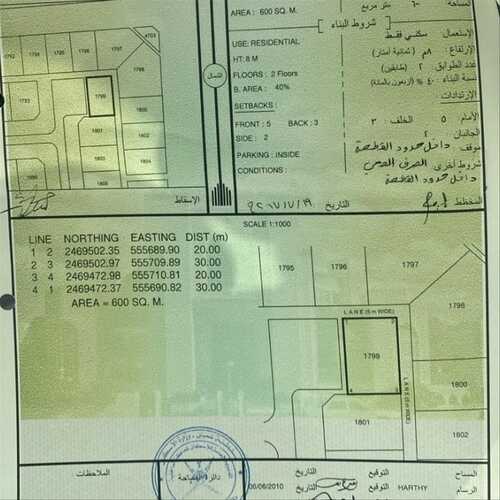 المساحة ٦٠٠ متر مربع
AREA : 600 SQ. M.
شروط البناء
USE: RESIDENTIAL
الإستعمال : سكني فقط
HT: 8 M
الإرتفاع : ٨م ( ثمانية أمتار )
FLOORS : 2 Floors
عدد الطوابق : ٢ ( طابقين )
B. AREA : 40%
نسبة البناء : ٤٠ % (أربعون بالمائة)
SETBACKS :
الإرتدادات
FRONT : 5 BACK : 3
الأمام : ٥ الخلف : ٣
SIDE : 2
الجانبان : ٢
PARKING : INSIDE
موقف داخل حدود القطعة
CONDITIONS :
شروط أخرى
داخل حدود القطعة
المخطط
التاريخ
الإسقاط
الشمال
4703
1792
1791
1795
1796
1793
1799
1800
1801
SCALE 1:1000
LINE NORTHING EASTING DIST (m)
1 2 2469502.35 555689.90 20.00
2 3 2469502.97 555709.89 30.00
3 4 2469472.98 555710.81 20.00
4 1 2469472.37 555690.82 30.00
AREA = 600 SQ. M.
1795
1796
1797
1798
LANE (6 m WIDE)
1799
LANE (6 m WIDE)
1800
1801
1802
الملاحظات
دائرة المساحة
06/06/2010
التاريخ
التوقيع
المساح
التاريخ
التوقيع
HARTHY
الرسام